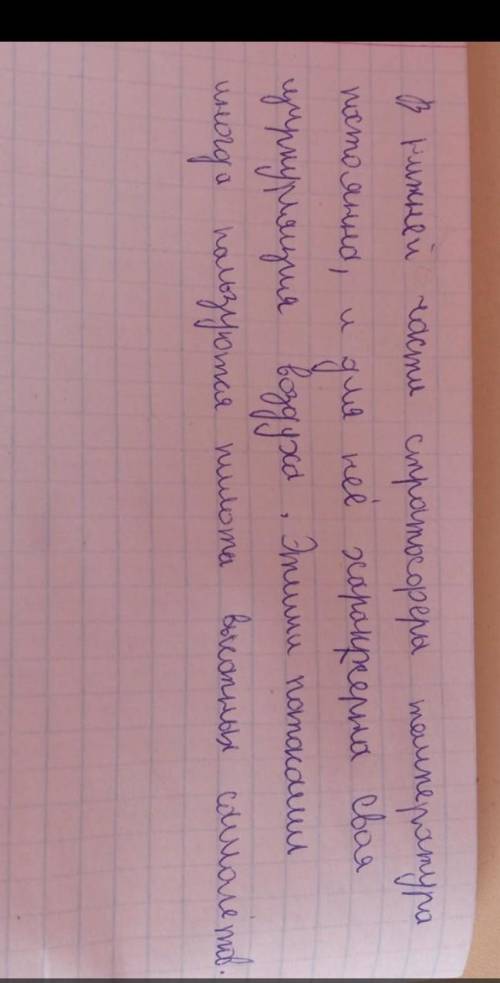 В нижней части стратосферы температура
постоянна, и для неё характерна своя
циркуляция воздуха, Этими потоками
иногда пользуются пилоты высотных самолётов.